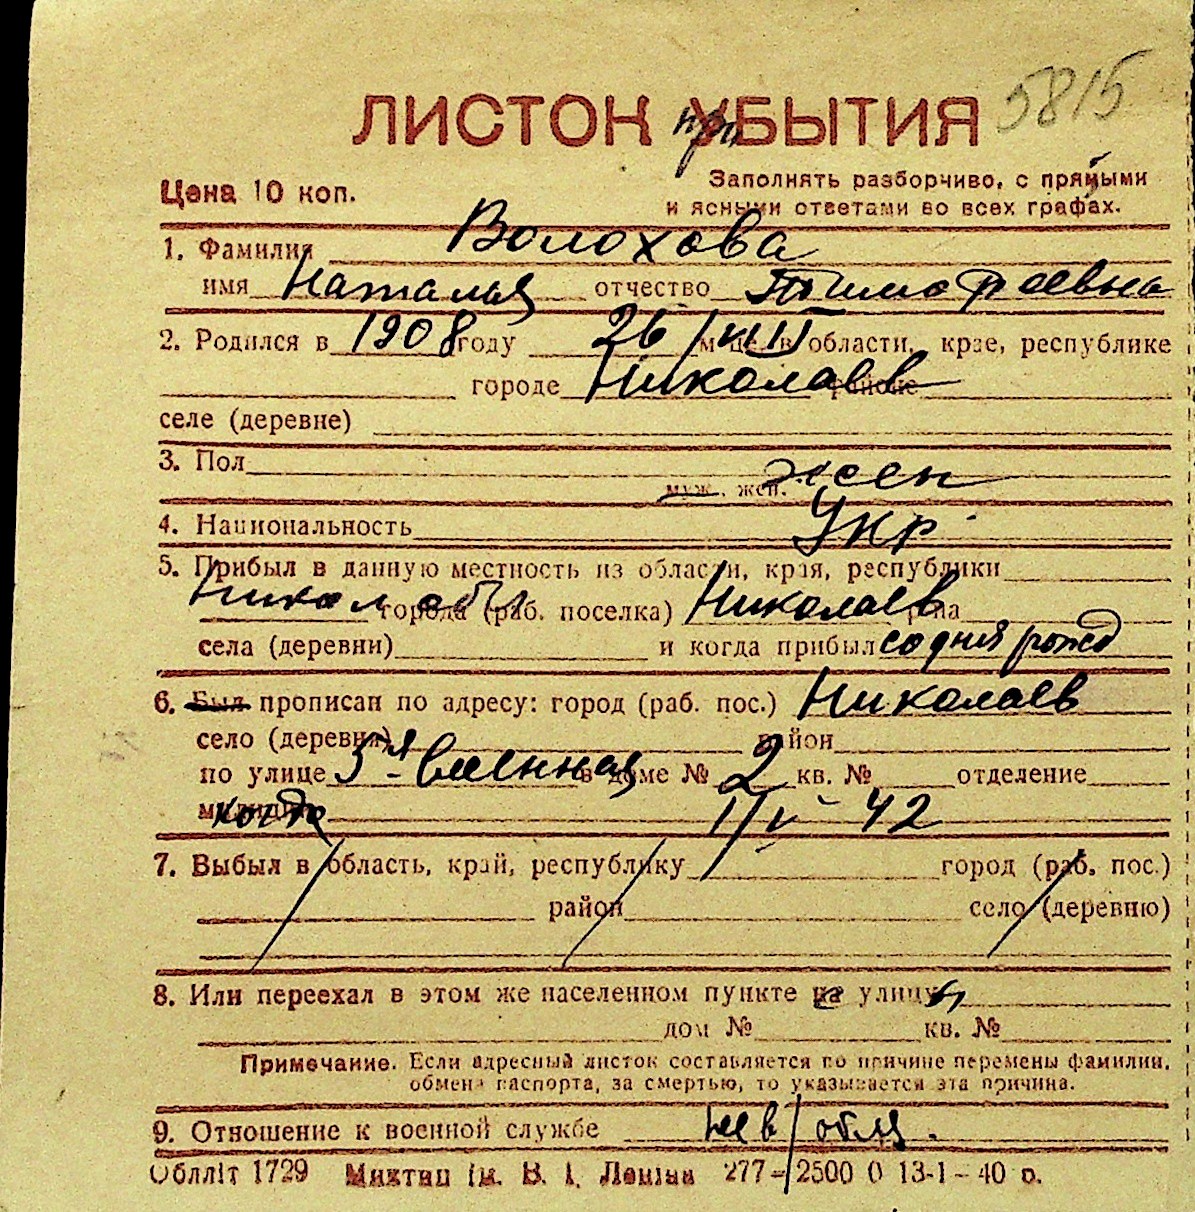 5815
ЛИСТОК при УБЫТИЯ
Цена 10 коп.
Заполнять разборчиво, с прямыми
и ясными ответами во всех графах.
1. Фамилия Волохова
имя Наталья отчество Тимофеевна
2. Родился в 1908 году 26/VIII м-це в области, крае, республике
городе Николаев районе
селе (деревне)
3. Пол жен
муж., жен.
4. Национальность Укр
5. Прибыл в данную местность из области, края, республики
Никол обл города (раб. поселка) Николаев р-на
села (деревни) и когда прибыл со дня рожд
6. Был прописан по адресу: город (раб. пос.) Николаев
село (деревня) район
по улице 5я-Военная в доме № 2 кв. № отделение
милиции когда 1/V 42
7. Выбыл в область, край, республику город (раб. пос.)
район село (деревню)
8. Или переехал в этом же населенном пункте с улицы
дом № кв. №
Примечание. Если адресный листок составляется по причине перемены фамилии,
обмена паспорта, за смертью, то указывается эта причина.
9. Отношение к военной службе
Облліт 1729 Миктип ім. В. І. Леніна 277-2500 0 13-1-40 р.